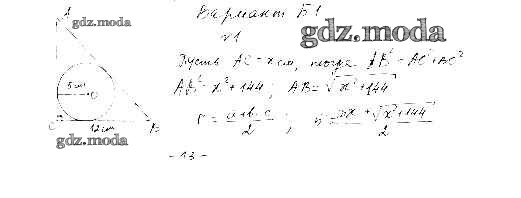 A
gdz.moda
5 см
O
C
12 см
B
gdz.moda
Вариант Б1
gdz.moda
№1
Пусть AC = x см, тогда AB² = AC² + AC²
AB² = x² + 144; AB = √x² + 144
r = a+b-c / 2 ;
x + √x² + 144 / 2
- 13 -